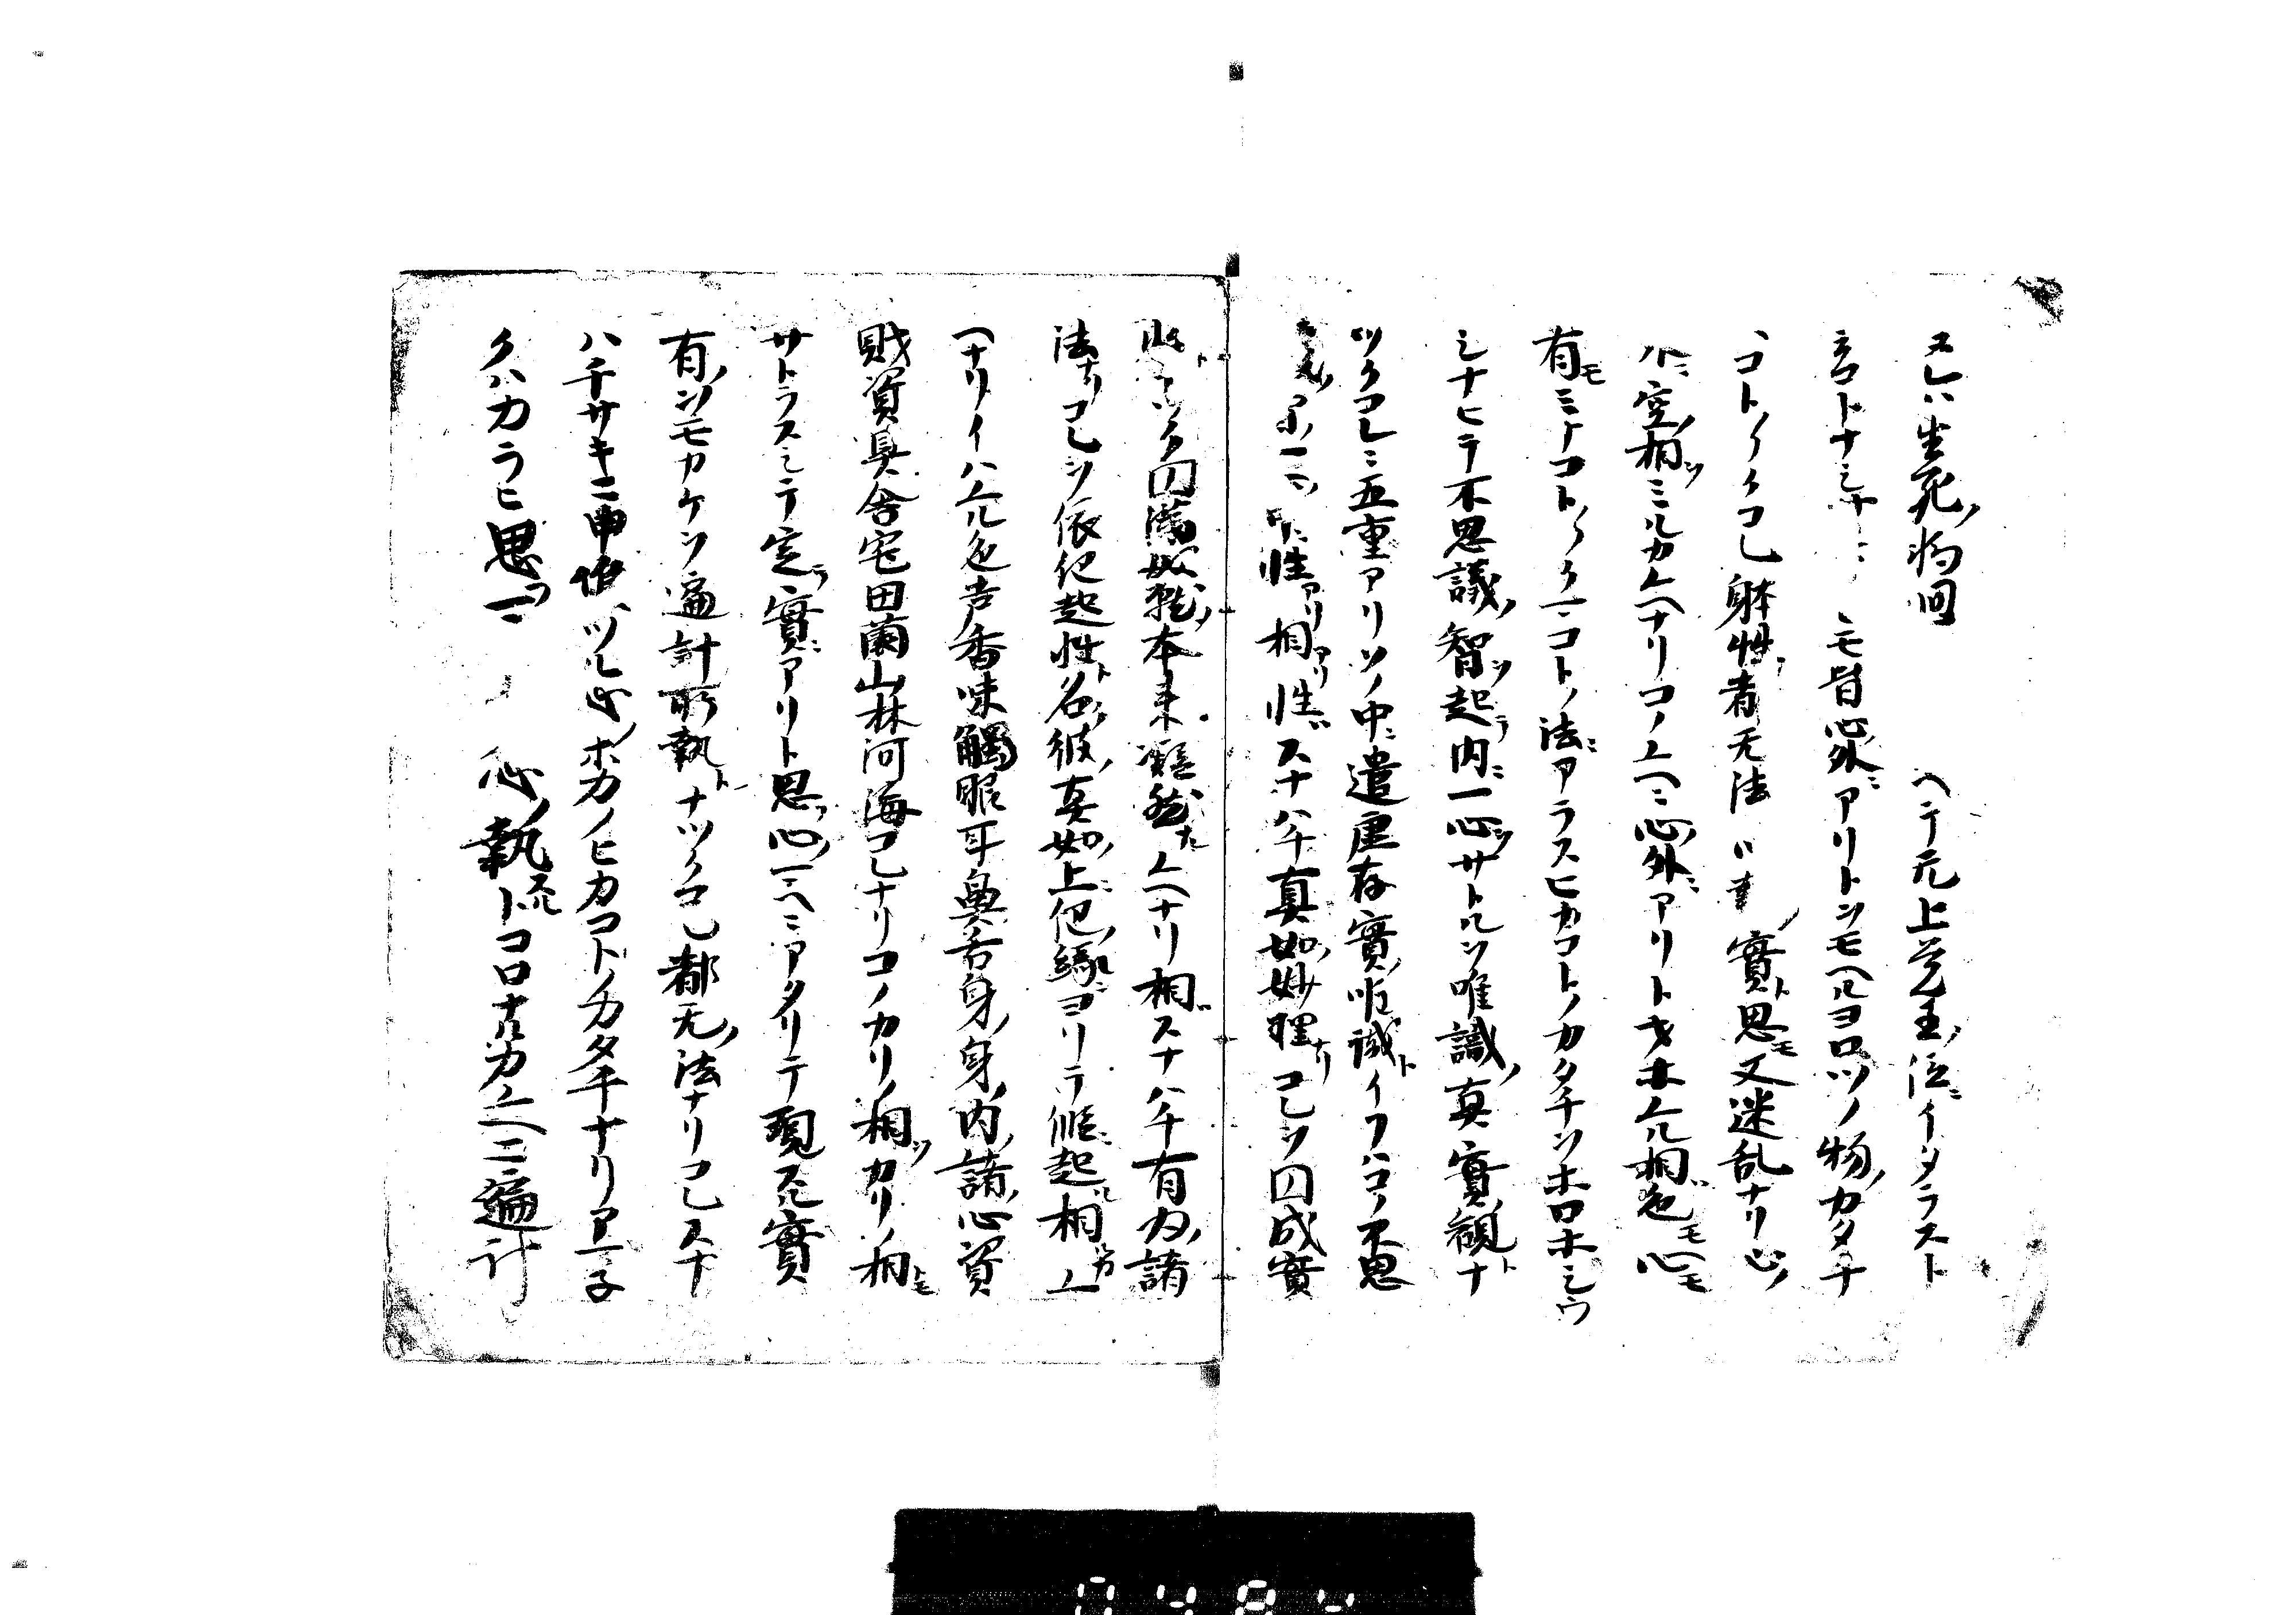 又レハ生死ノ狗囘 ヘテ元上覚王ノ位ニイタラスト
コトナシ ニモ皆心外ニアリトソモヘルヨロツノ物ノカタチ
コトノクコレ躰性ノ者无法 實ト思モ又迷乱ナリ心ノ
ハニ空相ツミルカユヘナリコノユヘニ心外ニアリトオホユル相ハ色モ心モ
有モミナコト〳〵クニコトノ法ニアラスヒカコトノカタチソホロホシウ
シナヒテ不思議ノ智ツ起ラ内ニ一心ツサトルツ唯識ノ真實ノ観トナ
ツクコレニ五重アリソノ中ニ遣虚存實ノ唯識トイフハコノ不思
アリ 性アリ相アリ性ハスナハチ真如ノ妙理ナリコレツ円成實
性トナツク円満成就ノ本来凝然タルユヘナリ相ハスナハチ有為ノ諸
法ナリコレツ依他起性ト名ク彼ノ真如ノ上ニ他ノ縁ニヨリテ縦ニ起ル相ナルカユ
ヘナリイハユル色声香味觸眼耳鼻舌身ノ身ノ内ノ諸ノ心資
財資具舎宅田薗山林河海コレナリコノカリノ相ツカリノ相トモ
サトラスシテ定ラ實ニアリト思フ心ノ一ヘニアタリテ現スル實
有ノソモカケツ遍計所執トナツクコレ都无ノ法ナリコレスナ
ハチサキニ申侍ハツル心ノホカノヒカコトノカタチナリアマ子
クハカラヒ思フ一ニ 心ノ執スルトコロナルカユヘニ遍計